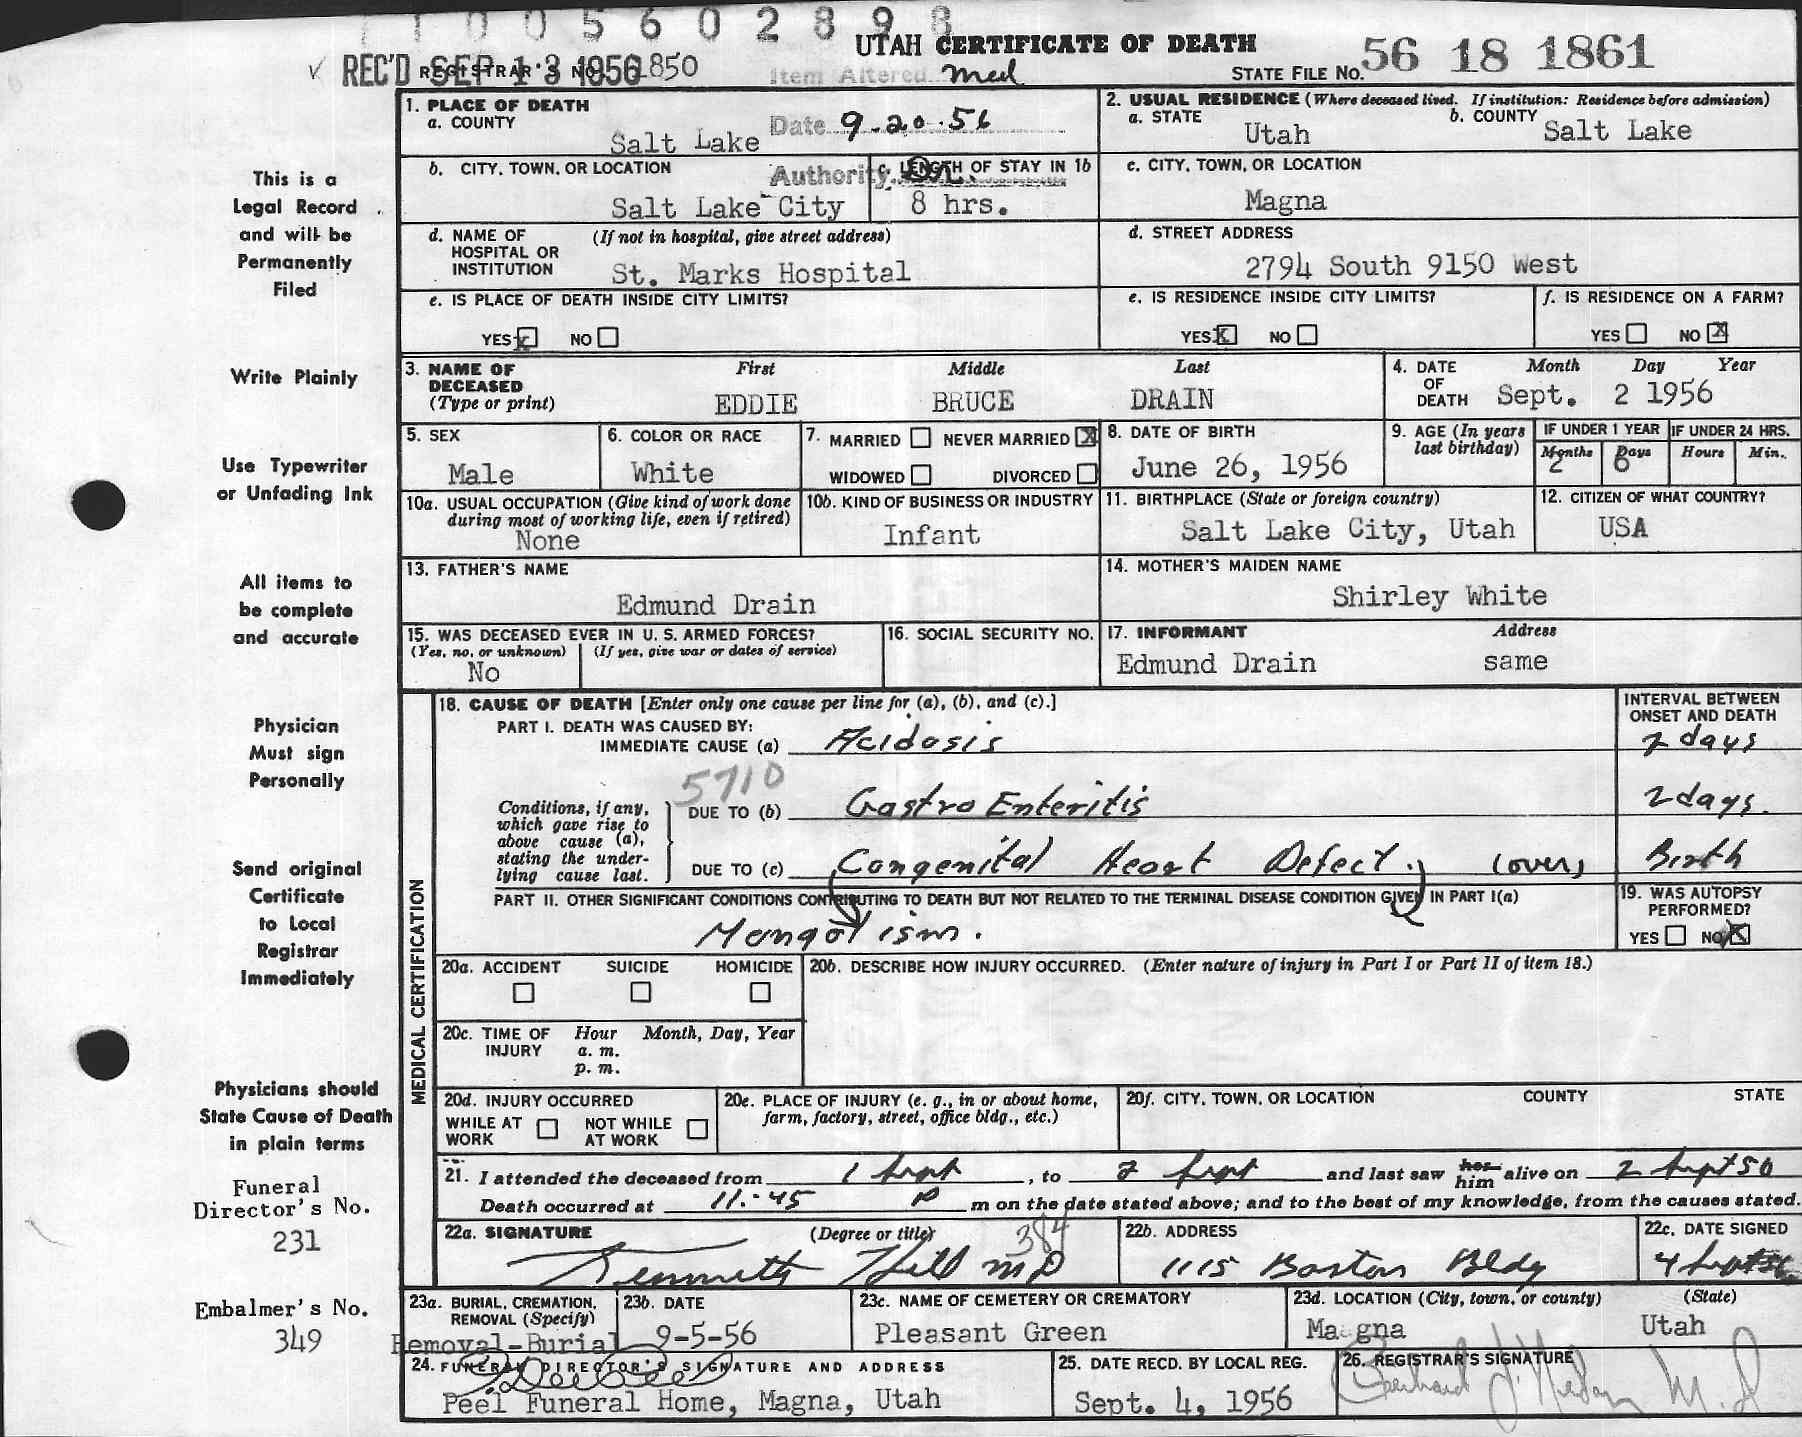 1 1 0 0 5 6 0 2 8 9 8
UTAH CERTIFICATE OF DEATH
REC'D SEP 13 1956
REGISTRAR'S NO. 1850
Item Altered Med
STATE FILE NO. 56 18 1861
This is a
Legal Record
and will be
Permanently
Filed
Write Plainly
Use Typewriter
or Unfading Ink
All items to
be complete
and accurate
Physician
Must sign
Personally
Send original
Certificate
to Local
Registrar
Immediately
Physicians should
State Cause of Death
in plain terms
Funeral
Director's No.
231
Embalmer's No.
349
1. PLACE OF DEATH
a. COUNTY
Salt Lake
Date 9-20-56
2. USUAL RESIDENCE (Where deceased lived. If institution: Residence before admission)
a. STATE
Utah
b. COUNTY
Salt Lake
b. CITY, TOWN, OR LOCATION
Salt Lake City
Authority Dr.
c. LENGTH OF STAY IN 1b
8 hrs.
c. CITY, TOWN, OR LOCATION
Magna
d. NAME OF (If not in hospital, give street address)
HOSPITAL OR
INSTITUTION
St. Marks Hospital
d. STREET ADDRESS
2794 South 9150 West
e. IS PLACE OF DEATH INSIDE CITY LIMITS?
YES x NO
e. IS RESIDENCE INSIDE CITY LIMITS?
YES X NO
f. IS RESIDENCE ON A FARM?
YES NO X
3. NAME OF DECEASED (Type or print)
First Middle Last
EDDIE BRUCE DRAIN
4. DATE OF DEATH
Month Day Year
Sept. 2 1956
5. SEX
Male
6. COLOR OR RACE
White
7. MARRIED NEVER MARRIED X
WIDOWED DIVORCED
8. DATE OF BIRTH
June 26, 1956
9. AGE (In years last birthday)
IF UNDER 1 YEAR IF UNDER 24 HRS.
Months Days Hours Min.
2 6
10a. USUAL OCCUPATION (Give kind of work done
during most of working life, even if retired)
None
10b. KIND OF BUSINESS OR INDUSTRY
Infant
11. BIRTHPLACE (State or foreign country)
Salt Lake City, Utah
12. CITIZEN OF WHAT COUNTRY?
USA
13. FATHER'S NAME
Edmund Drain
14. MOTHER'S MAIDEN NAME
Shirley White
15. WAS DECEASED EVER IN U. S. ARMED FORCES?
(Yes, no, or unknown) (If yes, give war or dates of service)
No
16. SOCIAL SECURITY NO.
17. INFORMANT Address
Edmund Drain same
MEDICAL CERTIFICATION
18. CAUSE OF DEATH [Enter only one cause per line for (a), (b), and (c).]
INTERVAL BETWEEN
ONSET AND DEATH
PART I. DEATH WAS CAUSED BY:
IMMEDIATE CAUSE (a) Acidosis 2 days
5710
Conditions, if any,
which gave rise to
above cause (a),
stating the under-
lying cause last.
DUE TO (b) Gastro Enteritis 2 days.
DUE TO (c) Congenital Heart Defect. (over) Birth
PART II. OTHER SIGNIFICANT CONDITIONS CONTRIBUTING TO DEATH BUT NOT RELATED TO THE TERMINAL DISEASE CONDITION GIVEN IN PART I(a)
Mongolism.
19. WAS AUTOPSY
PERFORMED?
YES NO X
20a. ACCIDENT SUICIDE HOMICIDE
20b. DESCRIBE HOW INJURY OCCURRED. (Enter nature of injury in Part I or Part II of item 18.)
20c. TIME OF Hour Month, Day, Year
INJURY a. m.
p. m.
20d. INJURY OCCURRED
WHILE AT WORK NOT WHILE AT WORK
20e. PLACE OF INJURY (e. g., in or about home,
farm, factory, street, office bldg., etc.)
20f. CITY, TOWN, OR LOCATION COUNTY STATE
21. I attended the deceased from 1 Sept, to 2 Sept and last saw her him alive on 2 Sept 56
Death occurred at 11:45 P m on the date stated above; and to the best of my knowledge, from the causes stated.
22a. SIGNATURE (Degree or title) 384
Kenneth Hill MD
22b. ADDRESS
1115 Boston Bldg
22c. DATE SIGNED
4 Sept 56
23a. BURIAL, CREMATION,
REMOVAL (Specify)
Removal-Burial
23b. DATE
9-5-56
23c. NAME OF CEMETERY OR CREMATORY
Pleasant Green
23d. LOCATION (City, town, or county) (State)
Magna Utah
24. FUNERAL DIRECTOR'S SIGNATURE AND ADDRESS
Peel Funeral Home, Magna, Utah
25. DATE RECD. BY LOCAL REG.
Sept. 4, 1956
26. REGISTRAR'S SIGNATURE
M.D